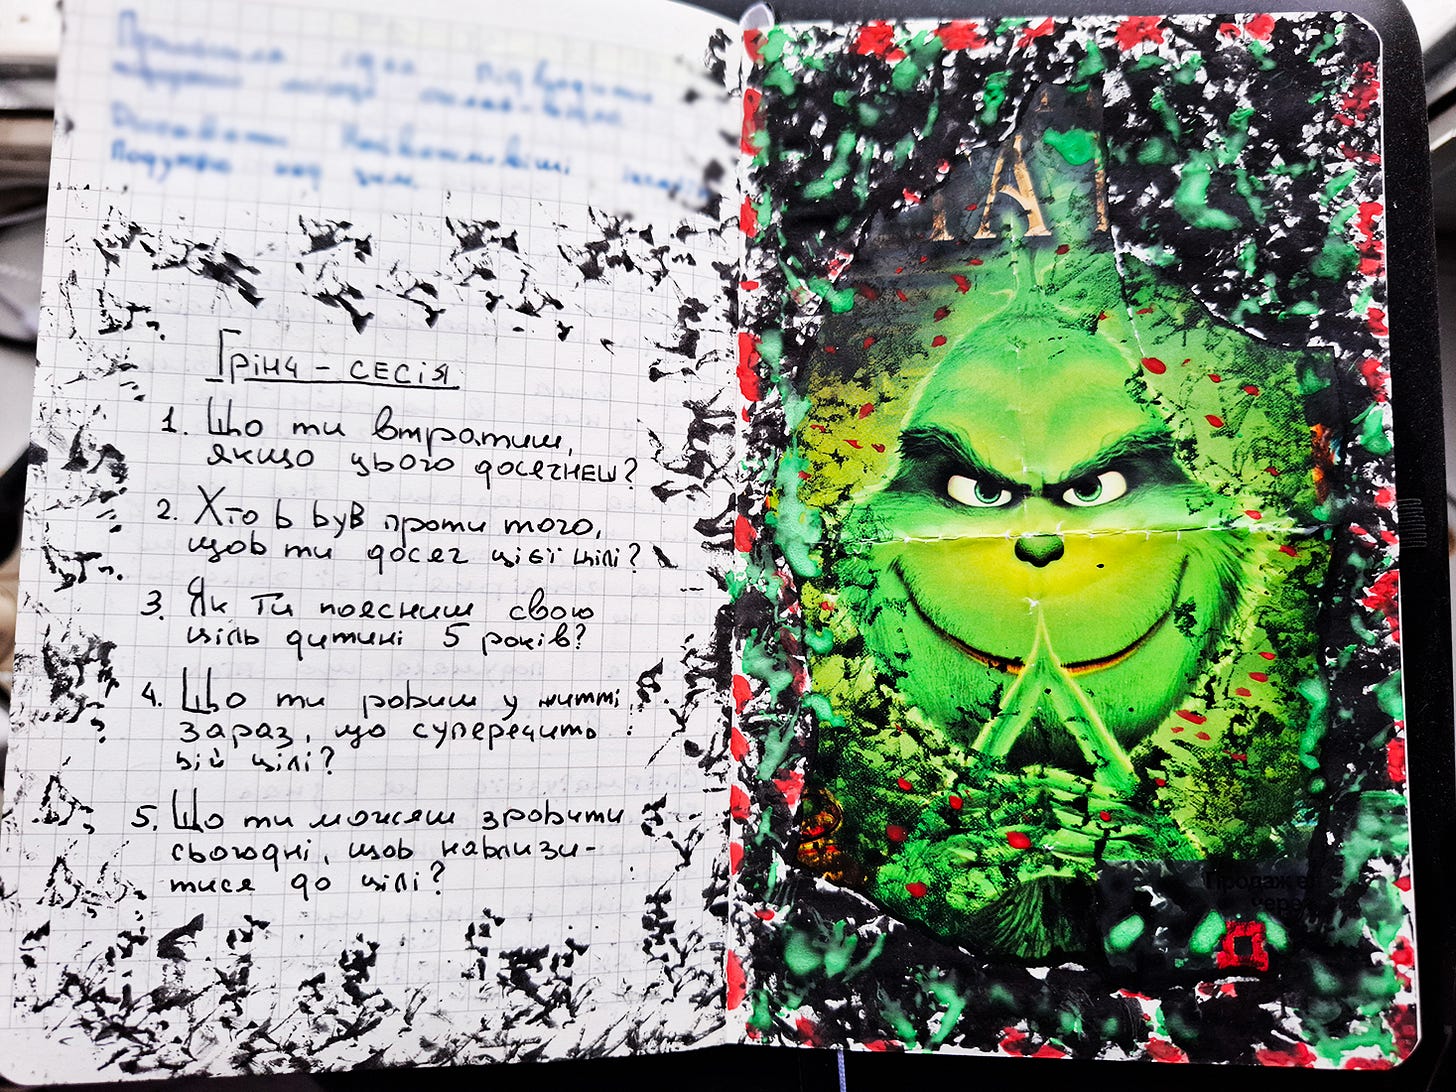 Грінч - сесія
1. Що ти втратиш,
якщо цього досягнеш?
2. Хто б був проти того,
щоб ти досяг цієї цілі?
3. Як ти поясниш свою
ціль дитині 5 років?
4. Що ти робиш у житті
зараз, що суперечить
цій цілі?
5. Що ти можеш зробити
сьогодні, щоб наблизи-
тися до цілі?